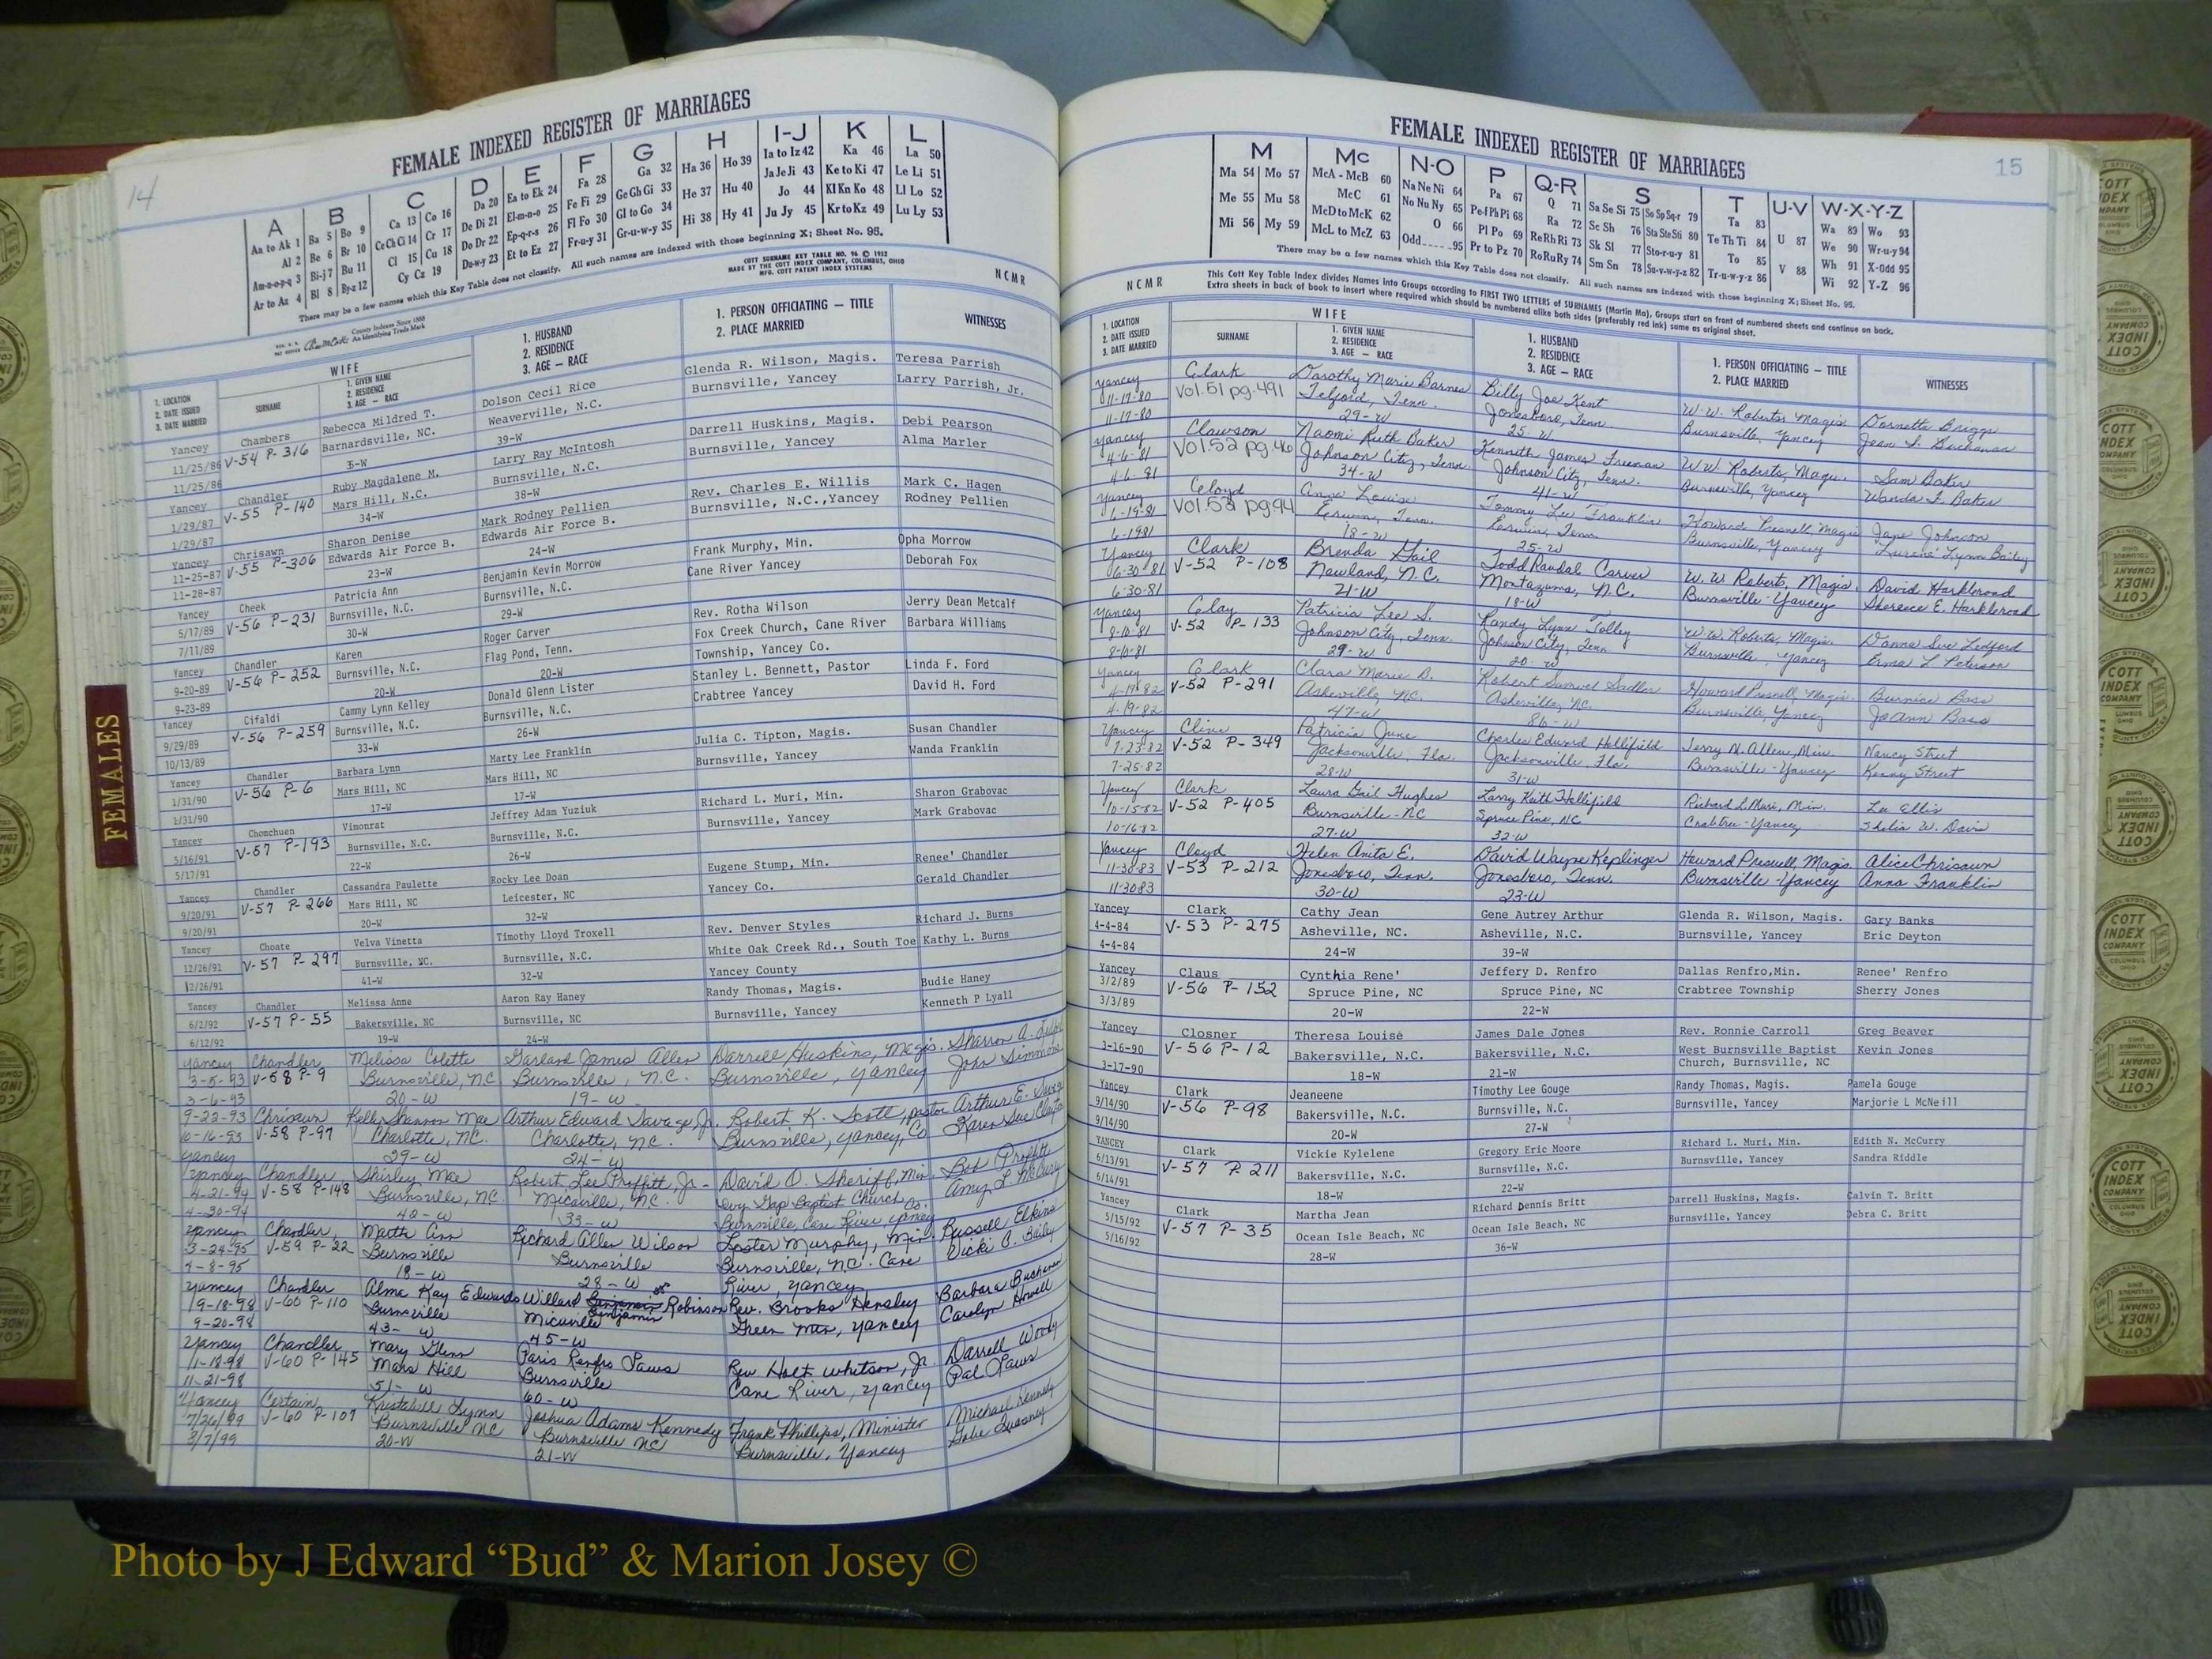 14
FEMALE INDEXED REGISTER OF MARRIAGES
A B C D E F G H I-J K L
Aa to Ak 1 Ba 5 Bo 9 Ca 13 Co 16 Da 20 Ea to Ek 24 Fa 28 Ga 32 Ha 36 Ho 39 Ia to Iz 42 Ka 46 La 50
Al 2 Be 6 Br 10 Ce Ch Ci 14 Cr 17 De Di 21 El-m-n-o 25 Fe Fi 29 Ge Gh Gi 33 He 37 Hu 40 Ja Je Ji 43 Ke to Ki 47 Le Li 51
Am-n-o-p-q 3 Bi-j 7 Bu 11 Cl 15 Cu 18 Do Dr 22 Ep-q-r-s 26 Fl Fo 30 Gl to Go 34 Hi 38 Hy 41 Jo 44 Kl Kn Ko 48 Ll Lo 52
Ar to Az 4 Bl 8 By-z 12 Cy Cz 19 Du-w-y 23 Et to Ez 27 Fr-u-y 31 Gr-u-w-y 35 Ju Jy 45 Kr to Kz 49 Lu Ly 53
There may be a few names which this Key Table does not classify. All such names are indexed with those beginning X; Sheet No. 95.
COTT SURNAME KEY TABLE NO. 96 © 1952
MADE BY THE COTT INDEX COMPANY, COLUMBUS, OHIO
MFG. COTT PATENT INDEX SYSTEMS
County Indexes Since 1888
An Identifying Trade Mark
NCMR
1. LOCATION
2. DATE ISSUED
3. DATE MARRIED
WIFE
SURNAME
1. GIVEN NAME
2. RESIDENCE
3. AGE — RACE
1. HUSBAND
2. RESIDENCE
3. AGE — RACE
1. PERSON OFFICIATING — TITLE
2. PLACE MARRIED
WITNESSES
Yancey Chambers Rebecca Mildred T. Dolson Cecil Rice Glenda R. Wilson, Magis. Teresa Parrish
11/25/86 V-54 P-316 Barnardsville, NC. Weaverville, N.C. Burnsville, Yancey Larry Parrish, Jr.
11/25/86 39-W
Yancey Chandler Ruby Magdalene M. Larry Ray McIntosh Darrell Huskins, Magis. Debi Pearson
1/29/87 V-55 P-140 Mars Hill, N.C. Burnsville, N.C. Burnsville, Yancey Alma Marler
1/29/87 34-W 38-W
Yancey Chrisawn Sharon Denise Mark Rodney Pellien Rev. Charles E. Willis Mark C. Hagen
11-25-87 V-55 P-306 Edwards Air Force B. Edwards Air Force B. Burnsville, N.C.,Yancey Rodney Pellien
11-28-87 23-W 24-W
Yancey Cheek Patricia Ann Benjamin Kevin Morrow Frank Murphy, Min. Opha Morrow
5/17/89 V-56 P-231 Burnsville, N.C. Burnsville, N.C. Cane River Yancey Deborah Fox
7/11/89 30-W 29-W
Yancey Chandler Karen Roger Carver Rev. Rotha Wilson Jerry Dean Metcalf
9-20-89 V-56 P-252 Burnsville, N.C. Flag Pond, Tenn. Fox Creek Church, Cane River Barbara Williams
9-23-89 20-W 20-W Township, Yancey Co.
Yancey Cifaldi Cammy Lynn Kelley Donald Glenn Lister Stanley L. Bennett, Pastor Linda F. Ford
9/29/89 V-56 P-259 Burnsville, N.C. Burnsville, N.C. Crabtree Yancey David H. Ford
10/13/89 33-W 26-W
Yancey Chandler Barbara Lynn Marty Lee Franklin Julia C. Tipton, Magis. Susan Chandler
1/31/90 V-56 P-6 Mars Hill, NC Mars Hill, NC Burnsville, Yancey Wanda Franklin
1/31/90 17-W 17-W
Yancey Chomchuen Vimonrat Jeffrey Adam Yuziuk Richard L. Muri, Min. Sharon Grabovac
5/16/91 V-57 P-193 Burnsville, N.C. Burnsville, N.C. Burnsville, Yancey Mark Grabovac
5/17/91 22-W 26-W
Yancey Chandler Cassandra Paulette Rocky Lee Doan Eugene Stump, Min. Renee' Chandler
9/20/91 V-57 P-266 Mars Hill, NC Leicester, NC Yancey Co. Gerald Chandler
9/20/91 20-W 32-W
Yancey Choate Velva Vinetta Timothy Lloyd Troxell Rev. Denver Styles Richard J. Burns
12/26/91 V-57 P-297 Burnsville, NC. Burnsville, N.C. White Oak Creek Rd., South Toe Kathy L. Burns
12/26/91 41-W 32-W Yancey County
Yancey Chandler Melissa Anne Aaron Ray Haney Randy Thomas, Magis. Budie Haney
6/2/92 V-57 P-55 Bakersville, NC Burnsville, NC Burnsville, Yancey Kenneth P Lyall
6/12/92 19-W 24-W
Yancey Chandler Melissa Colette Garland James Allen Darrell Huskins, Magis. Sharon A.
3-5-93 V-58 P-9 Burnsville, NC Burnsville, N.C. Burnsville, Yancey John Simmons
3-6-93 20-W 19-W
9-22-93 Chrisawn Kelly Shannon Mae Arthur Edward Savage, Jr. Robert K. Scott, pastor Arthur E. Savage
10-16-93 V-58 P-97 Charlotte, NC. Charlotte, NC. Burnsville, Yancey, Co Karen Sue Clayton
Yancey 29-W 24-W
Yancey Chandler Shirley Mae Robert Lee Proffitt, Jr. David O. Sheriff, Min. Bob Proffitt
4-21-94 V-58 P-148 Burnsville, NC. Micaville, NC. Ivy Gap Baptist Church Amy L McCurry
4-30-94 40-W 33-W Burnsville, Cane River Yancey Co.
Yancey Chandler Martha Ann Richard Allen Wilson Lester Murphy, Min. Russell Elkins
3-24-95 V-59 P-22 Burnsville Burnsville Burnsville, NC. Cane Vicki C. Bailey
4-8-95 18-W 28-W River, Yancey
Yancey Chandler Alma Kay Edwards Willard Benjamin Robinson Rev. Brooks Hensley Barbara Buchanan
9-18-98 V-60 P-110 Burnsville Micaville Benjamin Green Mtn, Yancey Carolyn Howell
9-20-98 43-W 45-W
Yancey Chandler Mary Glenn Paris Renfro Laws Rev Holt Whitson, Jr. Darrell Woody
11-18-98 V-60 P-145 Mars Hill Burnsville Cane River, Yancey Pal Laws
11-21-98 51-W 60-W
Yancey Certain Kristabell Lynn Joshua Adams Kennedy Frank Phillips, Minister Michael Kennedy
7/26/99 V-60 P-107 Burnsville NC Burnsville NC Burnsville, Yancey
8/7/99 20-W 21-W
FEMALES
15
FEMALE INDEXED REGISTER OF MARRIAGES
M Mc N-O P Q-R S T U-V W-X-Y-Z
Ma 54 Mo 57 McA - McB 60 Na Ne Ni 64 Pa 67 Q 71 Sa Se Si 75 So Sp Sq-r 79 Ta 83 Wa 89 Wo 93
Me 55 Mu 58 McC 61 No Nu Ny 65 Pe-f Ph Pi 68 Ra 72 Sc Sh 76 Sta Ste Sti 80 Te Th Ti 84 U 87 We 90 Wr-u-y 94
Mi 56 My 59 McD to McK 62 O 66 Pl Po 69 Re Rh Ri 73 Sk Sl 77 Sto-r-u-y 81 To 85 Wh 91 X-odd 95
McL to McZ 63 Odd 95 Pr to Pz 70 Ro Ru Ry 74 Sm Sn 78 Su-v-w-y-z 82 Tr-u-w-y-z 86 V 88 Wi 92 Y-Z 96
There may be a few names which this Key Table does not classify. All such names are indexed with those beginning X; Sheet No. 95.
NCMR
This Cott Key Table Index divides Names into Groups according to FIRST TWO LETTERS of SURNAMES (Martin Ma). Groups start on front of numbered sheets and continue on back.
Extra sheets in back of book to insert where required which should be numbered alike both sides (preferably red ink) same as original sheet.
1. LOCATION
2. DATE ISSUED
3. DATE MARRIED
WIFE
SURNAME
1. GIVEN NAME
2. RESIDENCE
3. AGE — RACE
1. HUSBAND
2. RESIDENCE
3. AGE — RACE
1. PERSON OFFICIATING — TITLE
2. PLACE MARRIED
WITNESSES
Yancey Clark Dorothy Marie Barnes Billy Joe Kent W.W. Roberts Magis Dornetta Briggs
11-17-80 Vol. 51 pg. 491 Telford, Tenn. Jonesboro, Tenn. Burnsville, Yancey Jean S. Buchanan
11-17-80 29-W 25-W
Yancey Clawson Naomi Ruth Baker Kenneth James Freeman W.W. Roberts, Magis. Sam Baker
4-6-81 Vol. 52 pg. 46 Johnson City, Tenn. Johnson City, Tenn. Burnsville, Yancey Wanda F. Baker
4-6-81 34-W 41-W
Yancey Cloyd Anna Louise Tommy Lee Franklin Howard Presnell, Magis Jane Johnson
6-19-81 Vol. 52 pg 94 Erwin, Tenn. Erwin, Tenn Burnsville, Yancey Lurene Lynn Bailey
6-19-81 18-W 25-W
Yancey Clark Brenda Gail Todd Randal Carver W. W. Roberts, Magis. David Harkleroad
6-30-81 V-52 P-108 Newland, N.C. Montezuma, N.C. Burnsville-Yancey Shereece E. Harkleroad
6-30-81 21-W 18-W
Yancey Clay Patricia Lee S. Randy Lynn Tolley W.W. Roberts, Magis. Donna Sue Ledford
8-10-81 V-52 P-133 Johnson City, Tenn. Johnson City, Tenn Burnsville, Yancey Erma L Peterson
8-10-81 29-W 20-W
Yancey Clark Clara Marie B. Robert Samuel Sadler Howard Presnell, Magis Burnice Bass
4-19-82 V-52 P-291 Asheville, NC. Asheville, NC Burnsville, Yancey JoAnn Bass
4-19-82 47-W 86-W
Yancey Cline Patricia June Charles Edward Hollifield Jerry N. Allen, Min. Nancy Street
7-23-82 V-52 P-349 Jacksonville, Fla. Jacksonville, Fla. Burnsville-Yancey Kenny Street
7-25-82 28-W 31-W
Yancey Clark Laura Gail Hughes Larry Keith Hollifield Richard L Muri, Min. Lu Ellis
10-15-82 V-52 P-405 Burnsville-NC Spruce Pine, NC Crabtree-Yancey Shelia W. Davis
10-16-82 27-W 32-W
Yancey Cloyd Helen Anita E. David Wayne Keplinger Howard Presnell, Magis. Alice Chrisawn
11-30-83 V-53 P-212 Jonesboro, Tenn. Jonesboro, Tenn. Burnsville-Yancey Anna Franklin
11-30-83 30-W 23-W
Yancey Clark Cathy Jean Gene Autrey Arthur Glenda R. Wilson, Magis. Gary Banks
4-4-84 V-53 P-275 Asheville, NC. Asheville, N.C. Burnsville, Yancey Eric Deyton
4-4-84 24-W 39-W
Yancey Claus Cynthia Rene' Jeffery D. Renfro Dallas Renfro,Min. Renee' Renfro
3/2/89 V-56 P-152 Spruce Pine, NC Spruce Pine, NC Crabtree Township Sherry Jones
3/3/89 20-W 22-W
Yancey Closner Theresa Louise James Dale Jones Rev. Ronnie Carroll Greg Beaver
3-16-90 V-56 P-12 Bakersville, N.C. Bakersville, N.C. West Burnsville Baptist Kevin Jones
3-17-90 18-W 21-W Church, Burnsville, NC
Yancey Clark Jeaneene Timothy Lee Gouge Randy Thomas, Magis. Pamela Gouge
9/14/90 V-56 P-98 Bakersville, N.C. Burnsville, N.C. Burnsville, Yancey Marjorie L McNeill
9/14/90 20-W 27-W
YANCEY Clark Vickie Kylelene Gregory Eric Moore Richard L. Muri, Min. Edith N. McCurry
6/13/91 V-57 P-211 Bakersville, N.C. Burnsville, N.C. Burnsville, Yancey Sandra Riddle
6/14/91 18-W 22-W
Yancey Clark Martha Jean Richard Dennis Britt Darrell Huskins, Magis. Calvin T. Britt
5/15/92 V-57 P-35 Ocean Isle Beach, NC Ocean Isle Beach, NC Burnsville, Yancey Debra C. Britt
5/16/92 28-W 36-W
COTT
INDEX
COMPANY
COLUMBUS
OHIO
Photo by J Edward “Bud” & Marion Josey ©